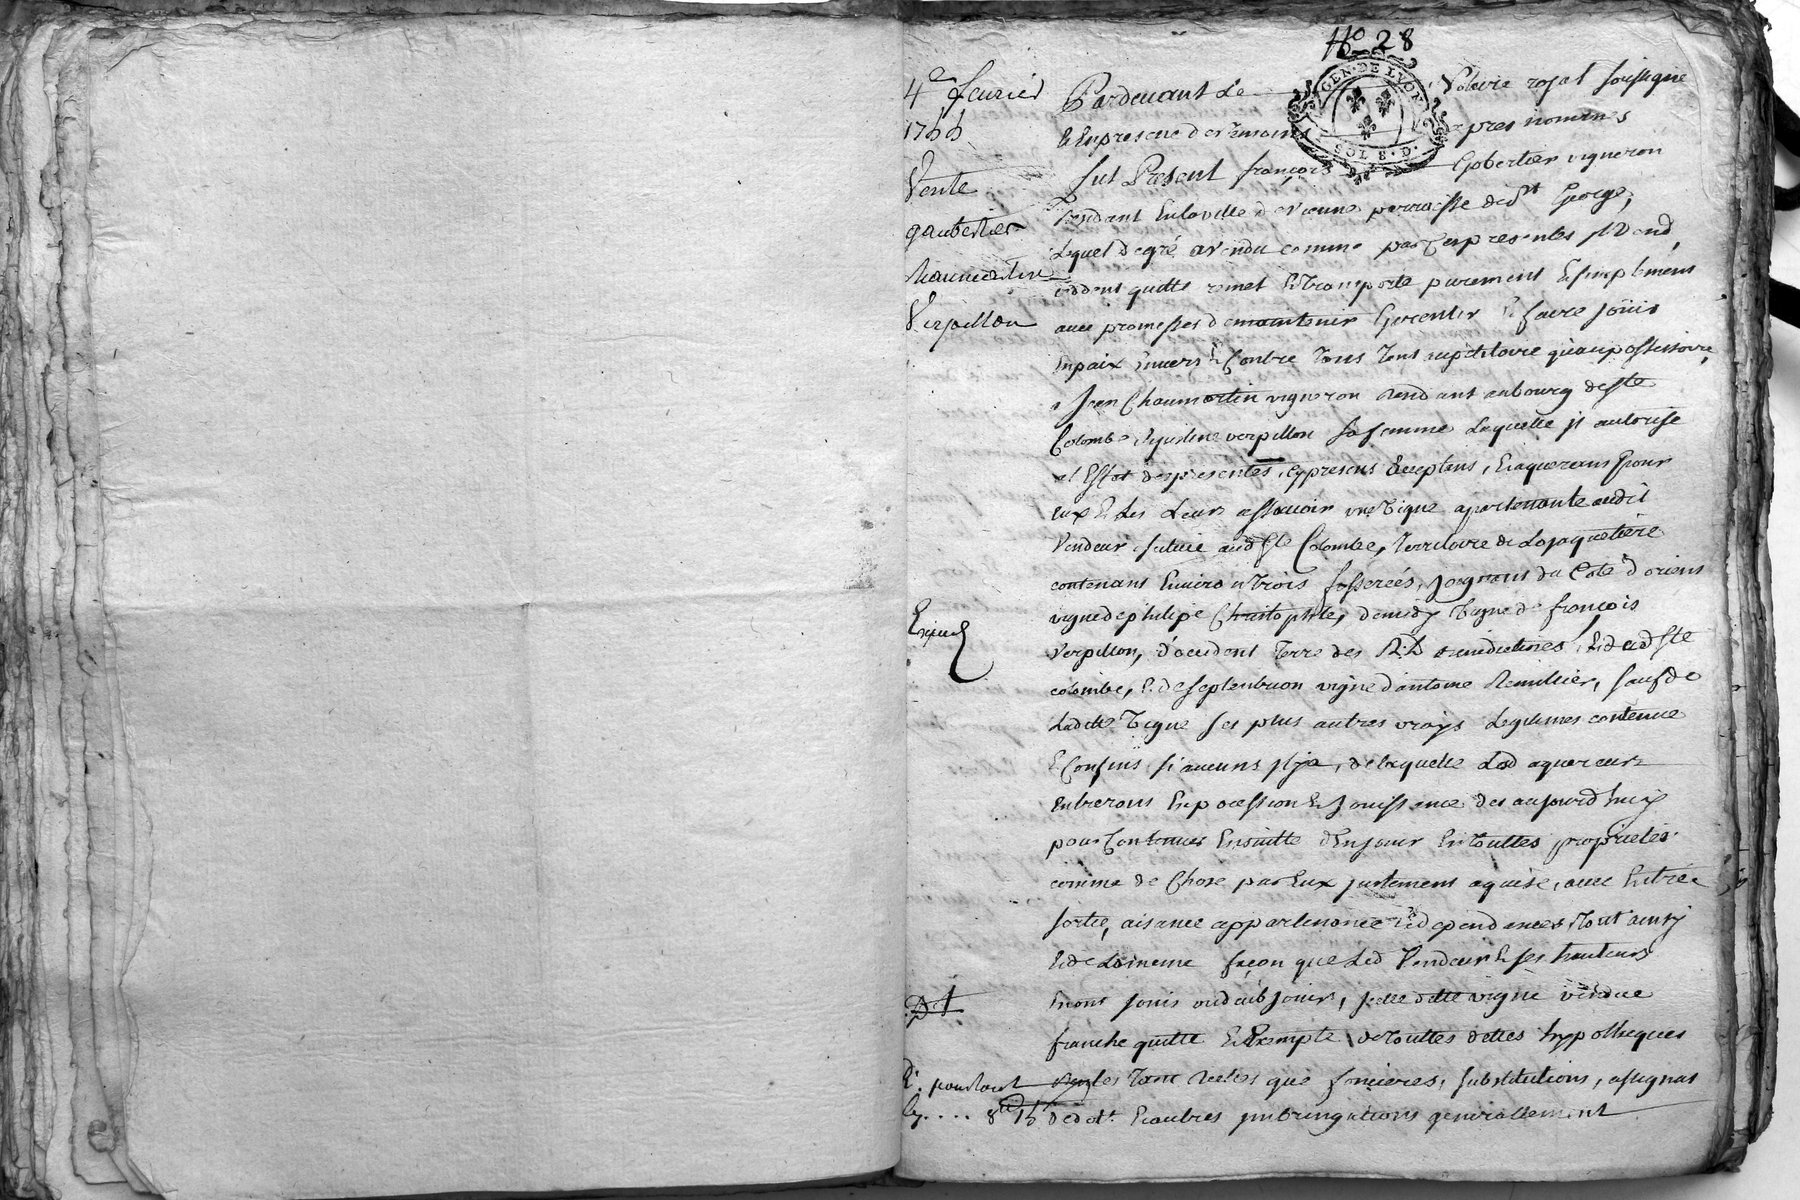 No 28
GEN. DE LYON
SOLS. D.
4e feurier
1755
Vente
gaubertier
Chaumartin
Verpillon
Pardeuant Le Notaire royal soussigné
& En presence des temoins apres nommés
fut Présent françois Gobertier vigneron
Residant En la ville de vienne parroisse de St George,
Lequel de gré a vendu comme par Ces presentes jl Vend,
cedde quitte remet Et transporte purement & simplement
auec promesses de maintenir Garentir & faire joüir
En paix Enuers & Contre tous tant au petitoire qu'au possessoire,
a Jean Chaumartin vigneron Residant au bourg de Ste
Colombe & verpillon sa femme Laquelle jl autorise
a l'Effet des presentes, cy presens acceptans, & aquerans pour
Eux & Les Leurs assauoir une Vigne apartenante audit
Vendeur situéé aud Ste Colombe, territoire de Lajaquetiere
contenant Enuiron trois fosseréés, joignant du Coté d'orient
vigne de philipe Christophle, de midy Vigne de françois
Verpillon, d'occident terre des R.D Benedictines dud Ste
colombe, & de septentrion vigne d'antoine Remillier, sauf de
Ladite Vigne ses plus autres vrays Legitimes contenue
& Confins si aucuns jl y a, de laquelle Led aquereurs
Entreront En possession & Jouissance des aujourd'huy
pour Continuer Ensuitte En touttes proprietés
comme de Chose par Eux justement aquise, auec Entréé
sortie, aisance appartenance & dependances tout ainsy
& de La meme façon que Led Vendeur & ses hauteurs
En ont jouis ou deub jouir, jcelle ditte vigne vendue
franche quitte & Exempte de touttes dettes hypotheques
tant Reelles que foncieres, substitutions, assignat
de dot. & autres jmbringations generallement
Expedié
D t